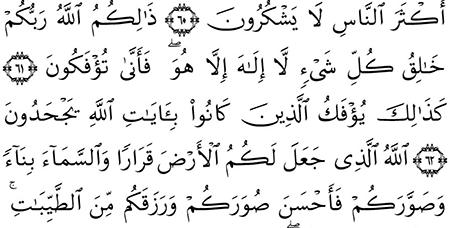 أَكْثَرَ ٱلنَّاسِ لَا يَشْكُرُونَ ۝٦٠ ذَٰلِكُمُ ٱللَّهُ رَبُّكُمْ
خَٰلِقُ كُلِّ شَىْءٍ لَّا إِلَٰهَ إِلَّا هُوَ ۖ فَأَنَّىٰ تُؤْفَكُونَ ۝٦١
كَذَٰلِكَ يُؤْفَكُ ٱلَّذِينَ كَانُوا۟ بِـَٔايَٰتِ ٱللَّهِ يَجْحَدُونَ
۝٦٢ ٱللَّهُ ٱلَّذِى جَعَلَ لَكُمُ ٱلْأَرْضَ قَرَارًا وَٱلسَّمَآءَ بِنَآءً
وَصَوَّرَكُمْ فَأَحْسَنَ صُوَرَكُمْ وَرَزَقَكُم مِّنَ ٱلطَّيِّبَٰتِ ۚ